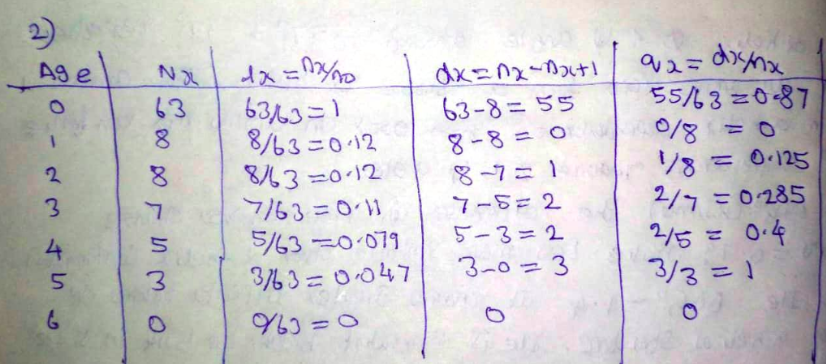 2)
Age Nx lx = nx/n0 dx = nx - nx+1 qx = dx/nx
0 63 63/63 = 1 63-8 = 55 55/63 = 0.87
1 8 8/63 = 0.12 8-8 = 0 0/8 = 0
2 8 8/63 = 0.12 8-7 = 1 1/8 = 0.125
3 7 7/63 = 0.11 7-5 = 2 2/7 = 0.285
4 5 5/63 = 0.079 5-3 = 2 2/5 = 0.4
5 3 3/63 = 0.047 3-0 = 3 3/3 = 1
6 0 0/63 = 0 0 0